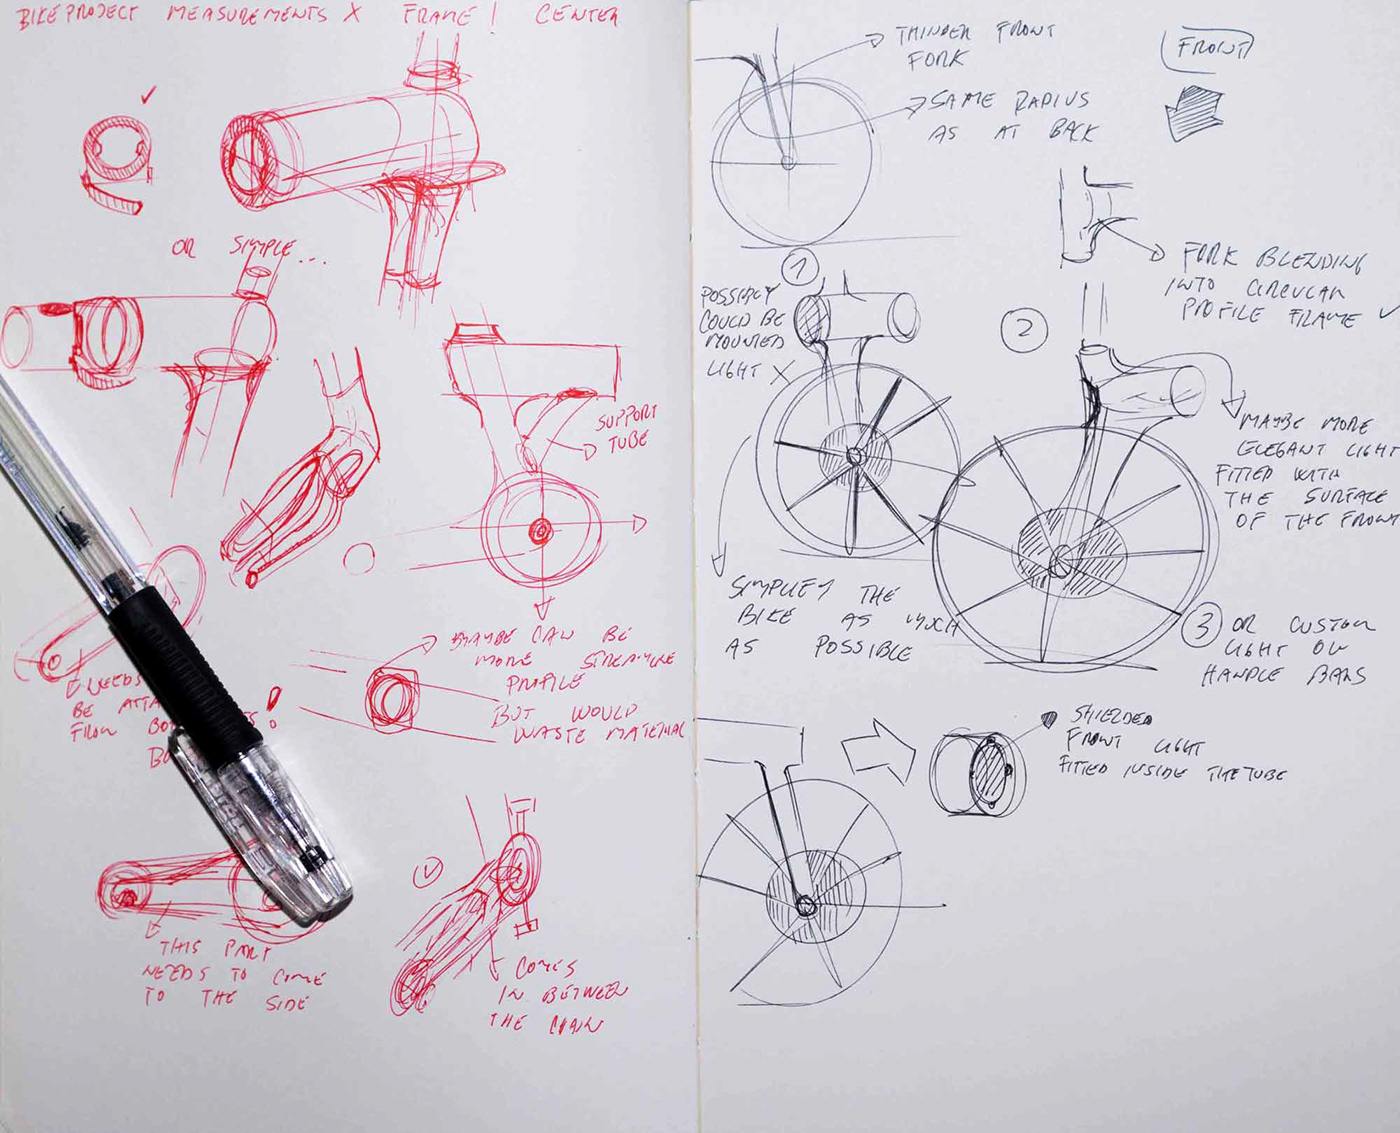 BIKEPROJECT MEASUREMENTS X FRAME! CENTER
OR SIMPLE...
SUPPORT
TUBE
MAYBE CAN BE
MORE
PROFILE
BUT WOULD
WASTE MATERIAL
NEEDS
BE
FROM
THIS PART
NEEDS TO COME
TO THE SIDE
COMES
IN BETWEEN
THE CHAIN
THINNER FRONT
FORK
SAME RADIUS
AS AT BACK
FRONT
FORK BLENDING
INTO CIRCULAR
PROFILE FRAME
1
POSSIBLY
COULD BE
MOUNTED
LIGHT X
2
MAYBE MORE
ELEGANT LIGHT
FITTED WITH
THE SURFACE
OF THE FRONT
SIMPLIFY THE
BIKE AS MUCH
AS POSSIBLE
3 OR CUSTOM
LIGHT ON
HANDLE BARS
SHIELDED
FRONT LIGHT
FITTED INSIDE THE TUBE